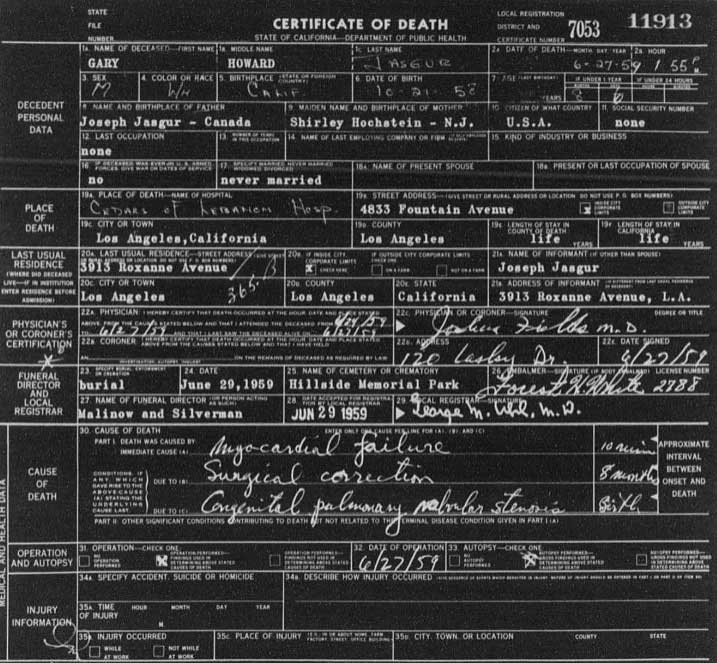 STATE FILE NUMBER
CERTIFICATE OF DEATH
STATE OF CALIFORNIA—DEPARTMENT OF PUBLIC HEALTH
LOCAL REGISTRATION DISTRICT AND CERTIFICATE NUMBER 7053 11913
DECEDENT PERSONAL DATA
1A. NAME OF DECEASED—FIRST NAME 1B. MIDDLE NAME 1C. LAST NAME 2A. DATE OF DEATH—MONTH DAY YEAR 2B. HOUR
GARY HOWARD JASGUR 6-27-59 1 55 P M
3. SEX 4. COLOR OR RACE 5. BIRTHPLACE (STATE OR FOREIGN COUNTRY) 6. DATE OF BIRTH 7. AGE (LAST BIRTHDAY) IF UNDER 1 YEAR IF UNDER 24 HOURS
M Wh CALIF 10-21-58 YEARS 8 6
8. NAME AND BIRTHPLACE OF FATHER 9. MAIDEN NAME AND BIRTHPLACE OF MOTHER 10. CITIZEN OF WHAT COUNTRY 11. SOCIAL SECURITY NUMBER
Joseph Jasgur - Canada Shirley Hochstein - N.J. U.S.A. none
12. LAST OCCUPATION 13. NUMBER OF YEARS IN THIS OCCUPATION 14. NAME OF LAST EMPLOYING COMPANY OR FIRM 15. KIND OF INDUSTRY OR BUSINESS
none
16. IF DECEASED WAS EVER IN U.S. ARMED FORCES, GIVE WAR OR DATES OF SERVICE 17. SPECIFY MARRIED, NEVER MARRIED WIDOWED DIVORCED 18A. NAME OF PRESENT SPOUSE 18B. PRESENT OR LAST OCCUPATION OF SPOUSE
no never married
PLACE OF DEATH
19A. PLACE OF DEATH—NAME OF HOSPITAL 19B. STREET ADDRESS—(GIVE STREET OR RURAL ADDRESS OR LOCATION DO NOT USE P. O. BOX NUMBERS)
Cedars of Lebanon Hosp 4833 Fountain Avenue X INSIDE CITY CORPORATE LIMITS OUTSIDE CITY CORPORATE LIMITS
19C. CITY OR TOWN 19D. COUNTY 19E. LENGTH OF STAY IN COUNTY OF DEATH 19F. LENGTH OF STAY IN CALIFORNIA
Los Angeles,California Los Angeles life YEARS life YEARS
LAST USUAL RESIDENCE
(WHERE DID DECEASED LIVE—IF IN INSTITUTION ENTER RESIDENCE BEFORE ADMISSION)
20A. LAST USUAL RESIDENCE—STREET ADDRESS 20B. IF INSIDE CITY CORPORATE LIMITS CHECK HERE IF OUTSIDE CITY CORPORATE LIMITS ON A FARM NOT ON A FARM 21A. NAME OF INFORMANT (IF OTHER THAN SPOUSE)
3913 Roxanne Avenue X Joseph Jasgur
20C. CITY OR TOWN 20D. COUNTY 20E. STATE 21B. ADDRESS OF INFORMANT
Los Angeles Los Angeles California 3913 Roxanne Avenue, L.A.
PHYSICIAN'S OR CORONER'S CERTIFICATION
22A. PHYSICIAN: I HEREBY CERTIFY THAT DEATH OCCURRED AT THE HOUR DATE AND PLACE STATED ABOVE, FROM THE CAUSES STATED BELOW AND THAT I ATTENDED THE DECEASED FROM
22C. PHYSICIAN OR CORONER—SIGNATURE DEGREE OR TITLE
Joshua Fields M.D.
22B. CORONER: I HEREBY CERTIFY THAT DEATH OCCURRED AT THE HOUR DATE AND PLACE STATED ABOVE FROM THE CAUSES STATED BELOW AND THAT I HAVE
ON THE REMAINS OF DECEASED AS REQUIRED BY LAW
22D. ADDRESS 22E. DATE SIGNED
120 Dr. 6/27/59
FUNERAL DIRECTOR AND LOCAL REGISTRAR
23. SPECIFY BURIAL, ENTOMBMENT OR CREMATION 24. DATE 25. NAME OF CEMETERY OR CREMATORY 26. EMBALMER—SIGNATURE (IF BODY EMBALMED) LICENSE NUMBER
burial June 29,1959 Hillside Memorial Park Forest H. White 2788
27. NAME OF FUNERAL DIRECTOR (OR PERSON ACTING AS SUCH) 28. DATE ACCEPTED FOR REGISTRATION BY LOCAL REGISTRAR 29. LOCAL REGISTRAR—SIGNATURE
Malinow and Silverman JUN 29 1959 George M. Uhl, M.D.
CAUSE OF DEATH
30. CAUSE OF DEATH ENTER ONLY ONE CAUSE PER LINE FOR (A), (B) AND (C)
PART I. DEATH WAS CAUSED BY: IMMEDIATE CAUSE (A) Myocardial failure 10 min
CONDITIONS, IF ANY, WHICH GAVE RISE TO THE ABOVE CAUSE (A) STATING THE UNDERLYING CAUSE LAST.
DUE TO (B) Surgical correction 8 months
DUE TO (C) Congenital pulmonary valvular stenosis Birth
APPROXIMATE INTERVAL BETWEEN ONSET AND DEATH
PART II: OTHER SIGNIFICANT CONDITIONS CONTRIBUTING TO DEATH BUT NOT RELATED TO THE TERMINAL DISEASE CONDITION GIVEN IN PART I (A)
OPERATION AND AUTOPSY
31. OPERATION—CHECK ONE: 32. DATE OF OPERATION 33. AUTOPSY—CHECK ONE:
NO OPERATION PERFORMED X OPERATION PERFORMED—FINDINGS USED IN DETERMINING ABOVE STATED CAUSES OF DEATH 6/27/59
INJURY INFORMATION
34A. SPECIFY ACCIDENT, SUICIDE OR HOMICIDE 34B. DESCRIBE HOW INJURY OCCURRED
35A. TIME OF INJURY HOUR MONTH DAY YEAR M
35B. INJURY OCCURRED WHILE AT WORK NOT WHILE AT WORK 35C. PLACE OF INJURY 35D. CITY, TOWN, OR LOCATION COUNTY STATE
MEDICAL AND HEALTH DATA